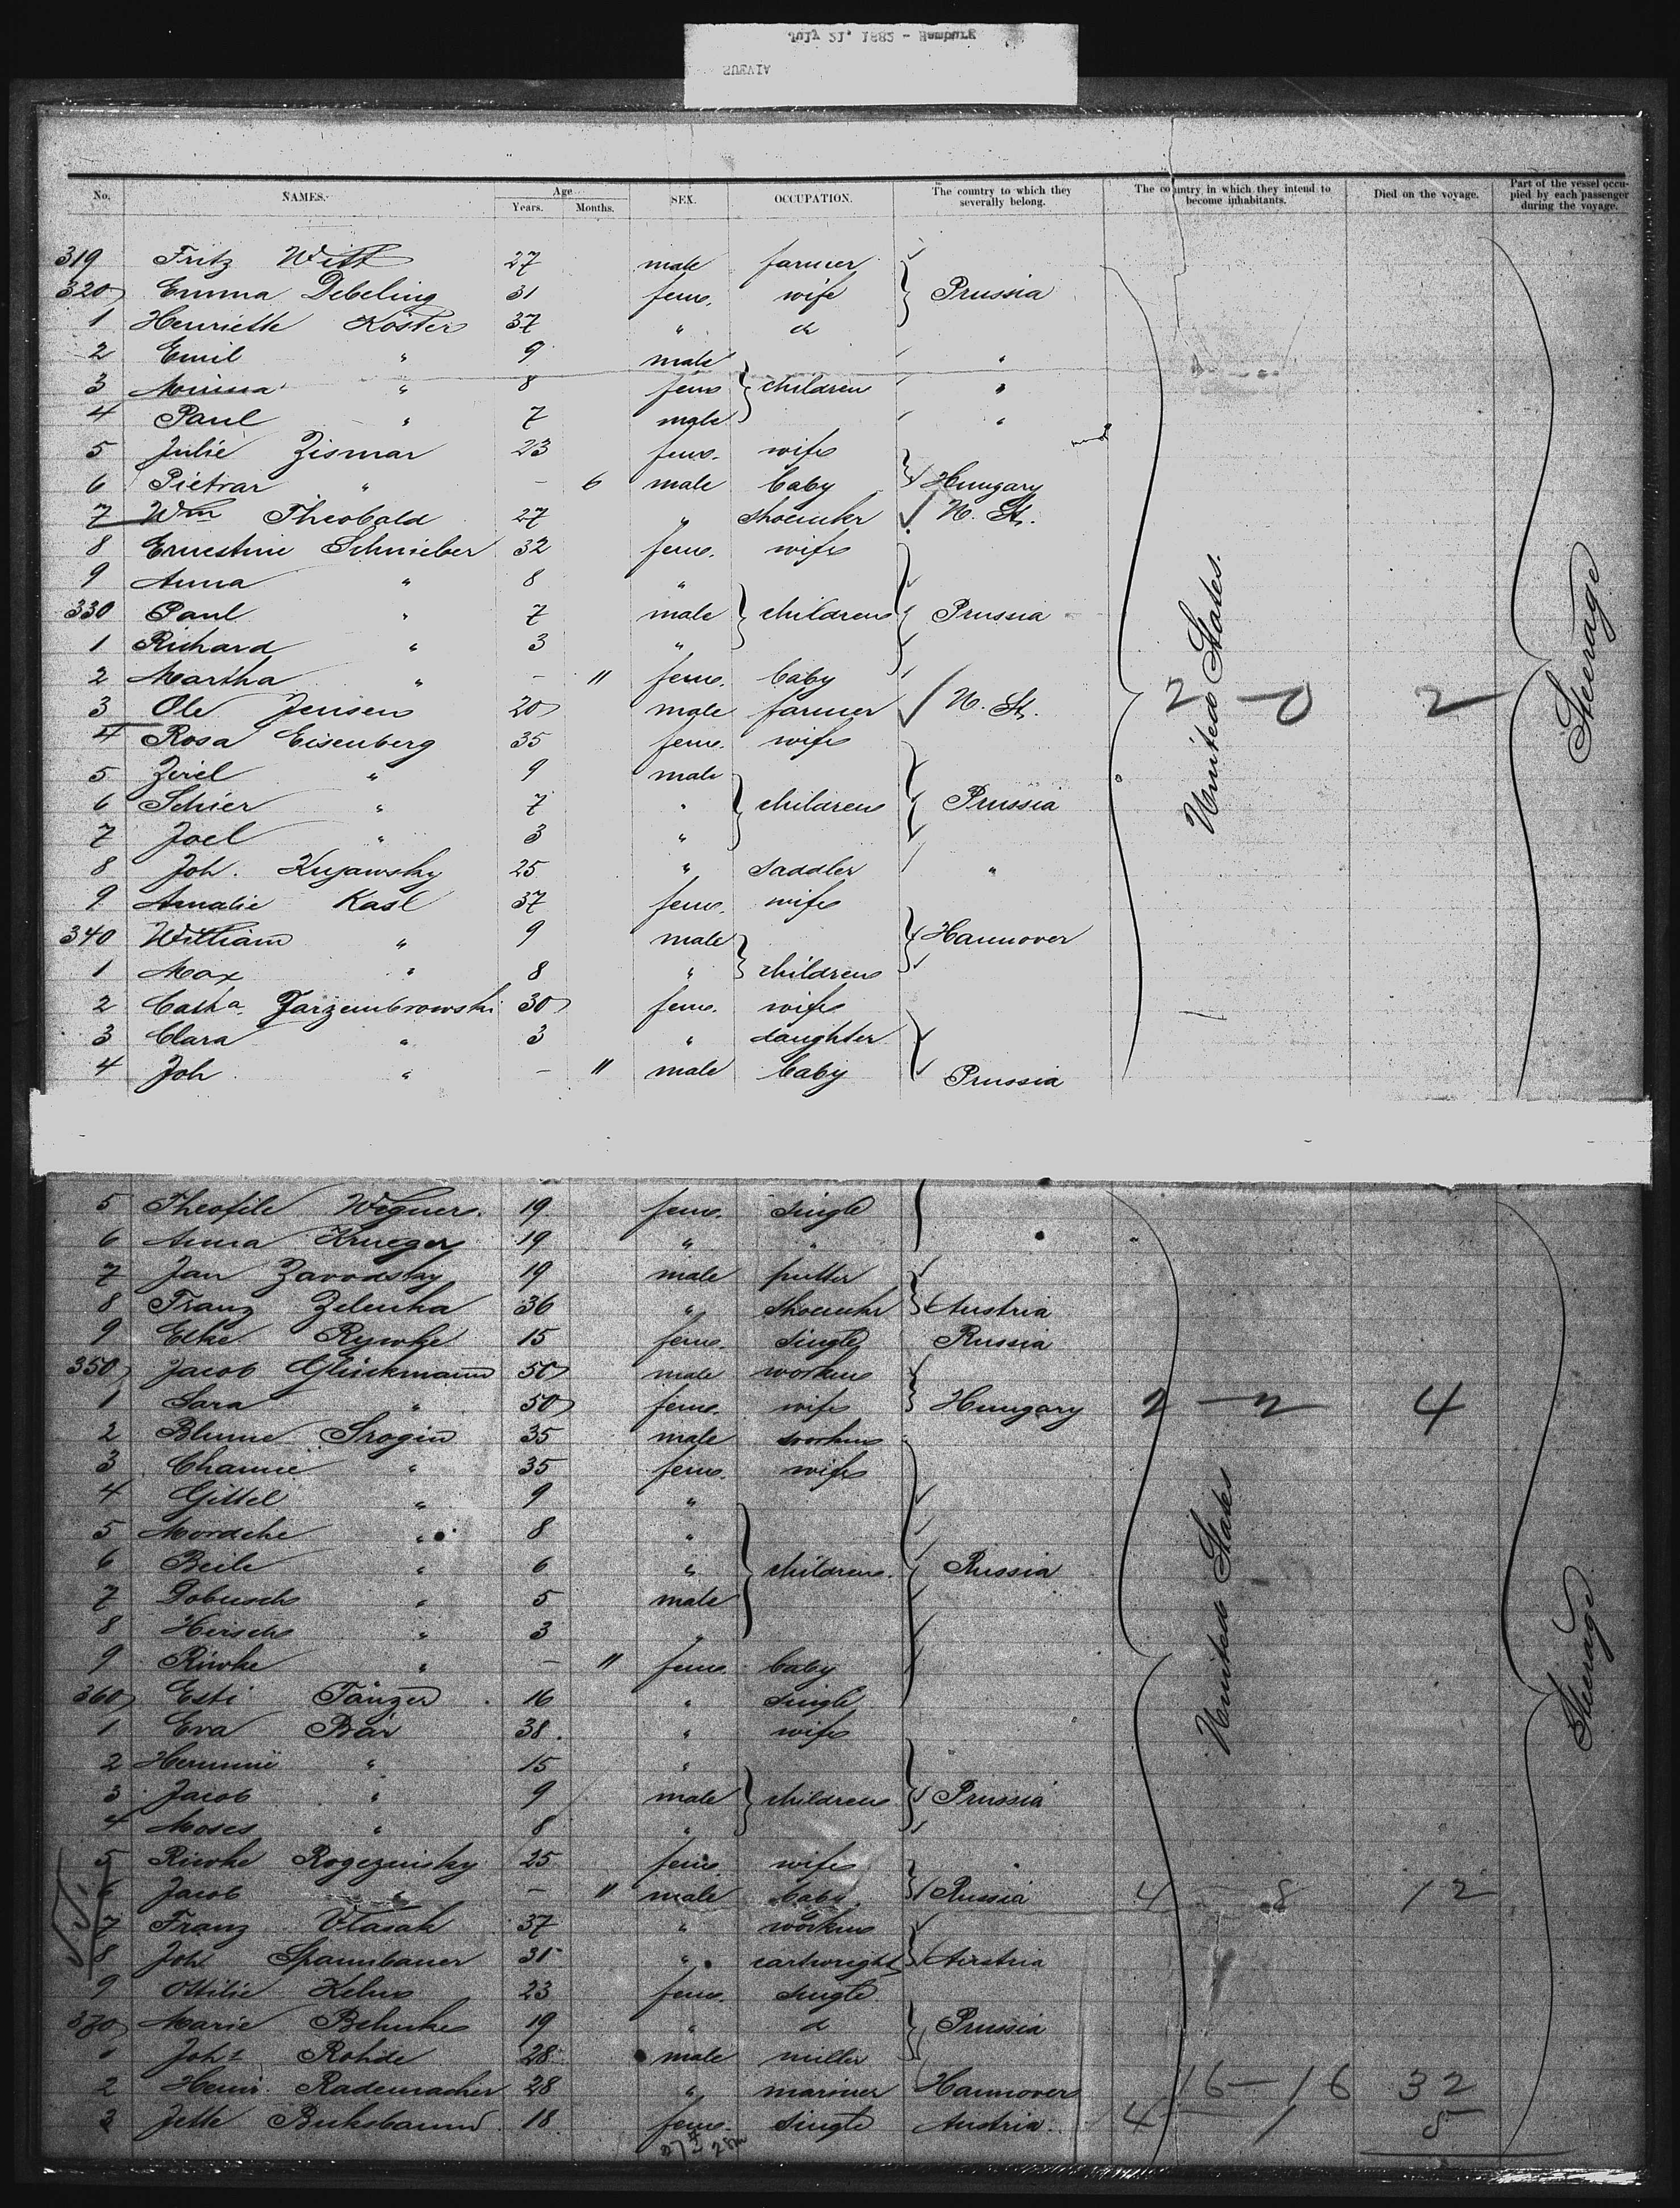 July 21, 1882 - Hamburg
SUEVIA
No. NAMES. Age Years. Months. SEX. OCCUPATION. The country to which they severally belong. The country in which they intend to become inhabitants. Died on the voyage. Part of the vessel occupied by each passenger during the voyage.
319 Fritz Witt 27 male farmer
320 Emma Debeling 31 fem. wife Prussia
1 Henriette Köster 37 " do
2 Emil " 9 male "
3 Minna " 8 fem children "
4 Paul " 7 male "
5 Julie Zismar 23 fem. wife
6 Pietrar " - 6 male baby Hungary
7 Wm Theobald 27 " shoemkr N. St.
8 Ernestine Schnieber 32 fem. wife
9 Anna " 8 "
330 Paul " 7 male children Prussia
1 Richard " 3 "
2 Martha " - 11 fem. baby
3 Ole Jensen 20 male farmer N. St. 2 - 0 2
4 Rosa Eisenberg 35 fem. wife
5 Zirel " 9 male
6 Schier " 7 " children Prussia
7 Joel " 3 "
8 Joh. Kujawsky 25 " saddler "
9 Amalie Kasl 37 fem. wife
340 William " 9 male Hannover
1 Max " 8 " children
2 Catha. Jarzembrowski 30 fem. wife
3 Clara " 3 " daughter
4 Joh " - 11 male baby Prussia
United States.
Steerage
5 Theofile Wegner. 19 fem. single
6 Anna Krueger 19 " "
7 Jan Zavodsky 19 male putter
8 Franz Zelenka 36 " shoemkr Austria
9 Elke Rywke 15 fem. single Russia
350 Jacob Glückmann 50 male workm
1 Sara " 50 fem. wife Hungary 2 - 2 4
2 Blume Srogin 35 male workm
3 Channe " 35 fem. wife
4 Gittel " 9 "
5 Mordche " 8 "
6 Beile " 6 " children. Russia
7 Dobusch " 5 male
8 Hirsch " 3 "
9 Riwke " - 11 fem. baby
360 Esti Tänzer 16 " single
1 Eva Bär 38. " wife
2 Hermine " 15 "
3 Jacob " 9 male children Prussia
4 Moses " 8 "
5 Riwke Rogezinsky 25 fem. wife
6 Jacob " - 11 male baby Russia 4 - 8 12
7 Franz Vlasak 37 " workm
8 Joh Spannbauer 31 " cartwright Austria
9 Ottilie Kelm 23 fem. single
370 Marie Behnke 19 " d Prussia
1 Joh. Rohde 28 male miller
2 Heinr. Rademacher 28 " mariner Hannover 16 - 16 32
3 Jette Buksbaum 18 fem. single Austria. 4 - 1 5
United States
Steerage